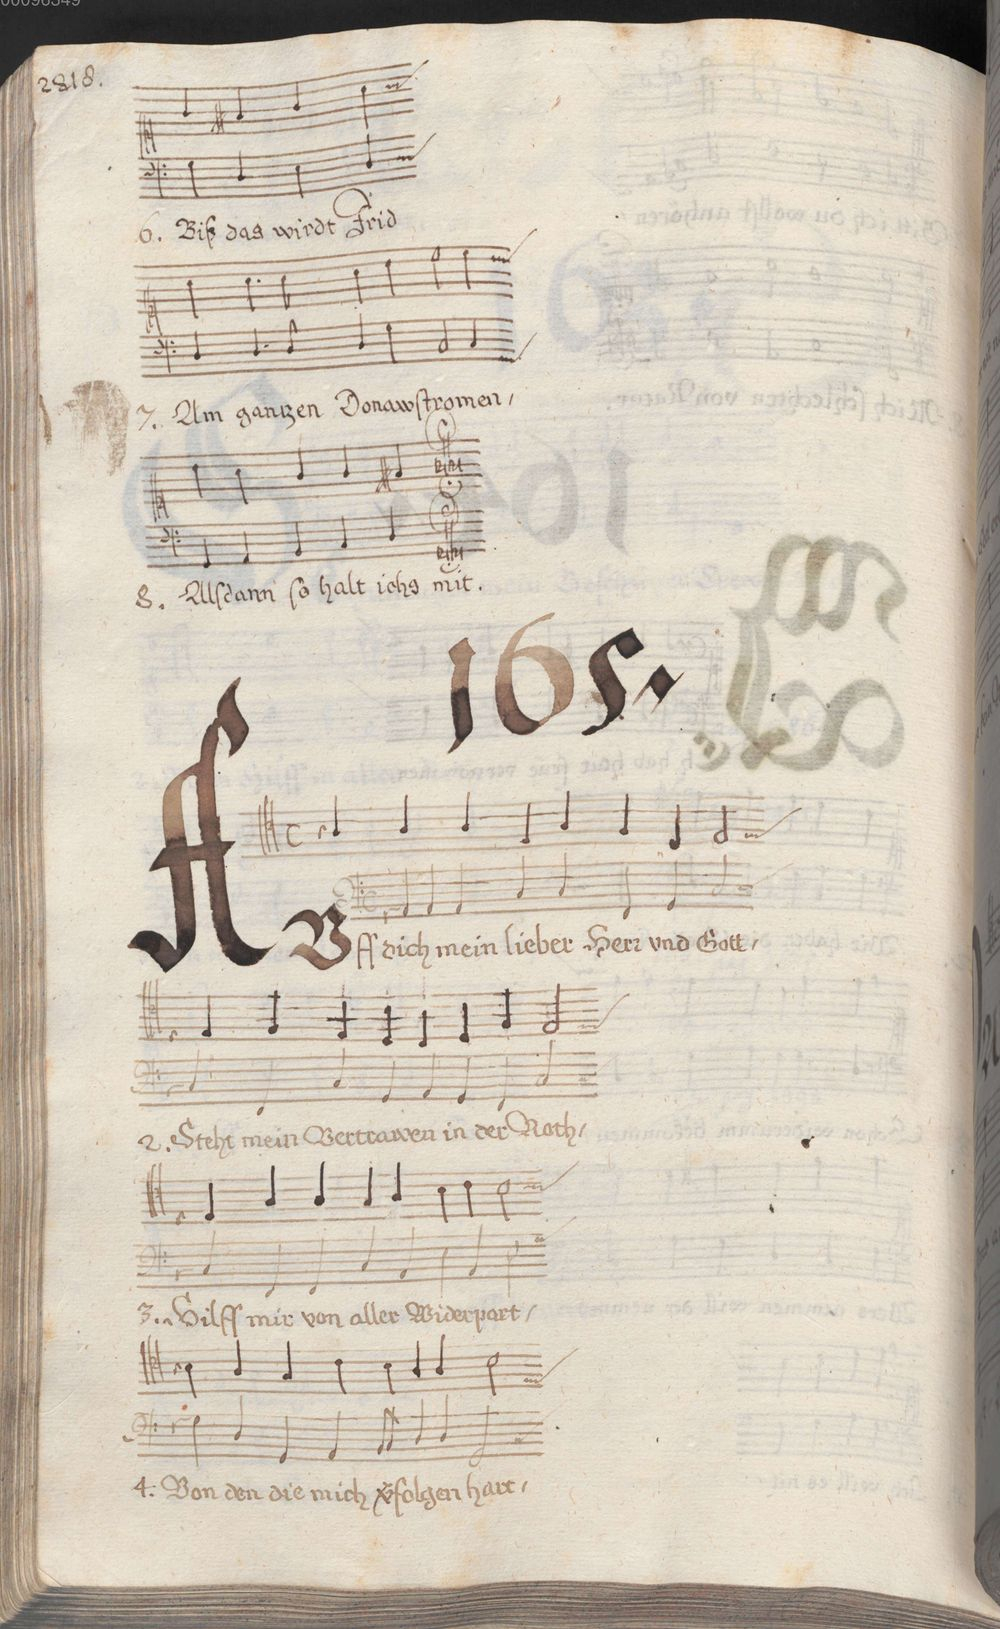 00096349
2818.
6. Biß das wirdt Frid
7. Am gantzen Donawstromen,
8. Alsdann so halt ichs mit.
165.
AVff dich mein lieber Herr vnd Gott,
2. Steht mein Vertrawen in der Noth,
3. Hilff mir von aller Widerpart,
4. Von den die mich vfolgen hart,